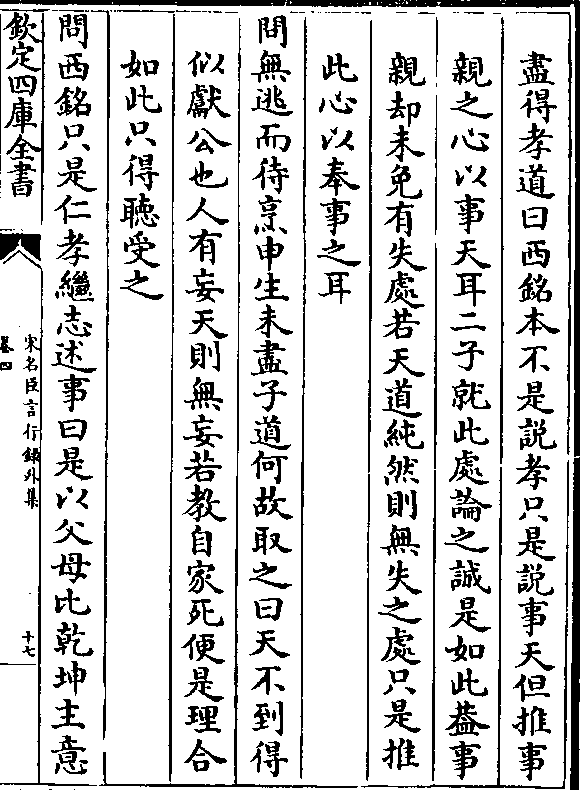 盡得孝道曰西銘本不是説孝只是説事天但推事
親之心以事天耳二子就此處論之誠是如此葢事
親却未免有失處若天道純然則無失之處只是推
此心以奉事之耳
問無逃而待烹申生未盡子道何故取之曰天不到得
似獻公也人有妄天則無妄若教自家死便是理合
如此只得聽受之
問西銘只是仁孝繼志述事曰是以父母比乾坤主意
欽定四庫全書
宋名臣言行録外集
卷四
十七